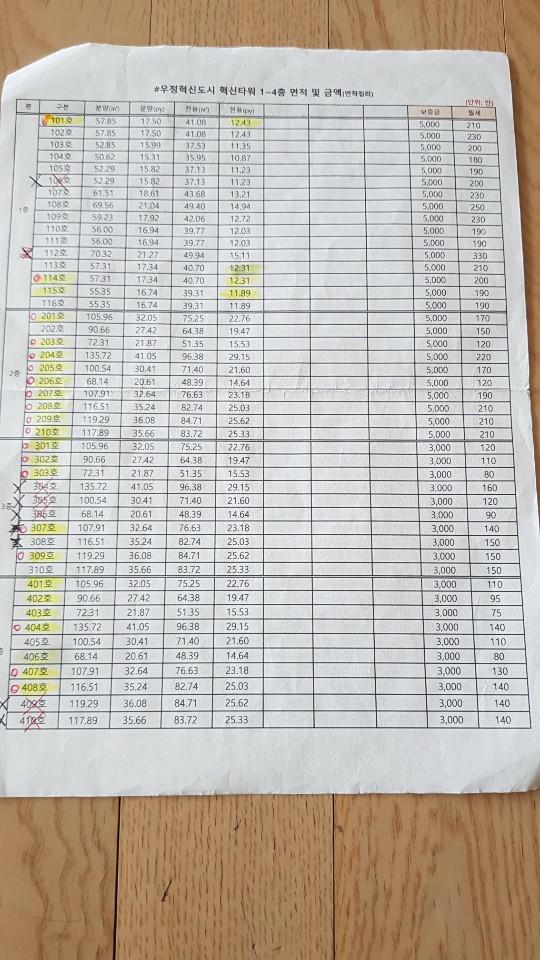 #우정혁신도시 혁신타워 1~4층 면적 및 금액(면적정리)
(단위: 만)
층 구분 분양(㎡) 분양(py) 전용(㎡) 전용(py) 보증금 월세
1층
101호 57.85 17.50 41.08 12.43 5,000 210
102호 57.85 17.50 41.08 12.43 5,000 230
103호 52.85 15.99 37.53 11.35 5,000 200
104호 50.62 15.31 35.95 10.87 5,000 180
105호 52.29 15.82 37.13 11.23 5,000 190
106호 52.29 15.82 37.13 11.23 5,000 200
107호 61.51 18.61 43.68 13.21 5,000 230
108호 69.56 21.04 49.40 14.94 5,000 250
109호 59.23 17.92 42.06 12.72 5,000 230
110호 56.00 16.94 39.77 12.03 5,000 190
111호 56.00 16.94 39.77 12.03 5,000 190
112호 70.32 21.27 49.94 15.11 5,000 330
113호 57.31 17.34 40.70 12.31 5,000 210
114호 57.31 17.34 40.70 12.31 5,000 200
115호 55.35 16.74 39.31 11.89 5,000 190
116호 55.35 16.74 39.31 11.89 5,000 190
2층
201호 105.96 32.05 75.25 22.76 5,000 170
202호 90.66 27.42 64.38 19.47 5,000 150
203호 72.31 21.87 51.35 15.53 5,000 120
204호 135.72 41.05 96.38 29.15 5,000 220
205호 100.54 30.41 71.40 21.60 5,000 170
206호 68.14 20.61 48.39 14.64 5,000 120
207호 107.91 32.64 76.63 23.18 5,000 190
208호 116.51 35.24 82.74 25.03 5,000 210
209호 119.29 36.08 84.71 25.62 5,000 210
210호 117.89 35.66 83.72 25.33 5,000 210
3층
301호 105.96 32.05 75.25 22.76 3,000 120
302호 90.66 27.42 64.38 19.47 3,000 110
303호 72.31 21.87 51.35 15.53 3,000 80
304호 135.72 41.05 96.38 29.15 3,000 160
305호 100.54 30.41 71.40 21.60 3,000 120
306호 68.14 20.61 48.39 14.64 3,000 90
307호 107.91 32.64 76.63 23.18 3,000 140
308호 116.51 35.24 82.74 25.03 3,000 150
309호 119.29 36.08 84.71 25.62 3,000 150
310호 117.89 35.66 83.72 25.33 3,000 150
401호 105.96 32.05 75.25 22.76 3,000 110
402호 90.66 27.42 64.38 19.47 3,000 95
403호 72.31 21.87 51.35 15.53 3,000 75
404호 135.72 41.05 96.38 29.15 3,000 140
405호 100.54 30.41 71.40 21.60 3,000 110
406호 68.14 20.61 48.39 14.64 3,000 80
407호 107.91 32.64 76.63 23.18 3,000 130
408호 116.51 35.24 82.74 25.03 3,000 140
409호 119.29 36.08 84.71 25.62 3,000 140
410호 117.89 35.66 83.72 25.33 3,000 140